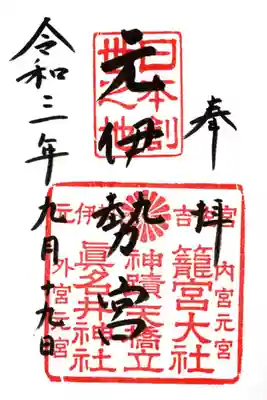 奉拝
日本創
世之地
元伊勢宮
元伊 吉 宮
内宮元宮
籠宮大社
天橋立
眞名井神社
外宮元宮
令和三年九月十九日